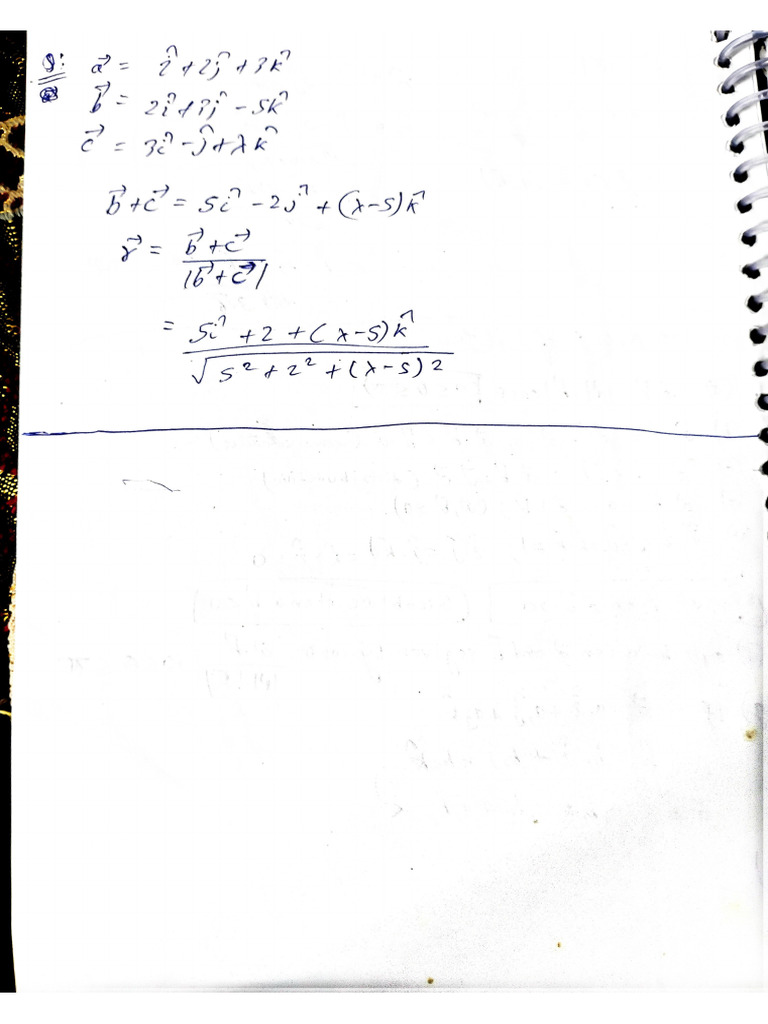 Q: a⃗ = î + 2ĵ + 3k̂
b⃗ = 2î + 3ĵ - 5k̂
c⃗ = 3î - ĵ + λk̂
b⃗ + c⃗ = 5î - 2ĵ + (λ-5)k̂
r⃗ = b⃗ + c⃗ / |b⃗ + c⃗|
= 5î + 2 + (λ-5)k̂ / √5² + 2² + (λ-5)2